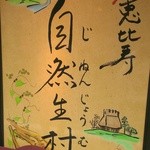 恵比寿
自然生村
じねんじょうむ